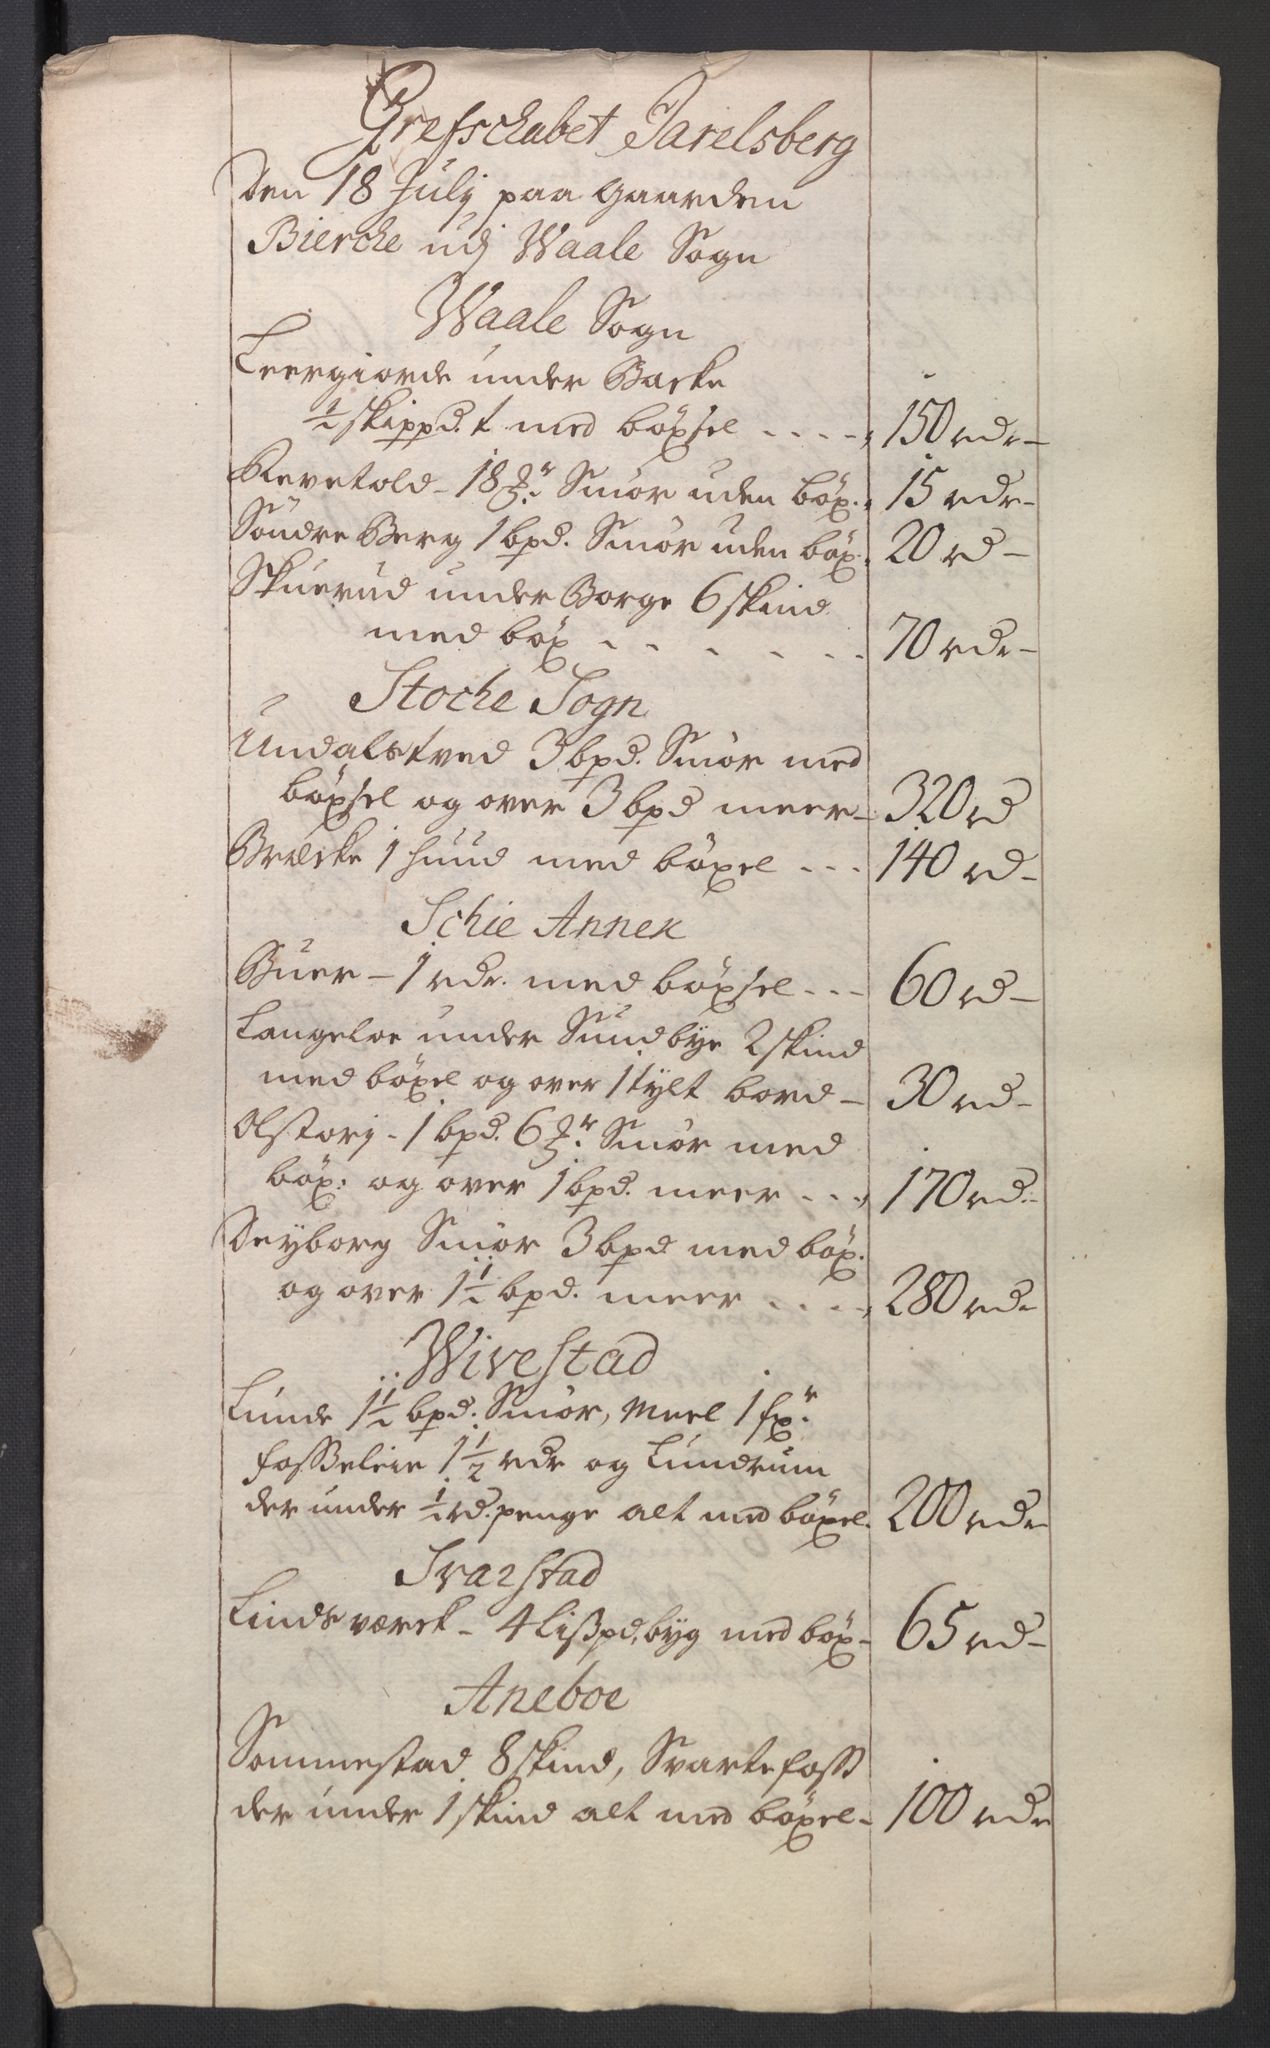 Grefschabet Jarelsberg
Den 18 Julij paa gaarden
Bierche udj Waale Sogn
Waale Sogn
Leergiorde under Backe
½ skippd. t. med böxsel - - - - 150 rdr
Revetold - 18 Smör uden böx. 15 rdr
Söndre Berg 1 bpd. Smör uden böx. 20 rd
Skuerud under Borge 6 skind
med böx - - - - - 70 rdr
Stoche Sogn
Undalstved 3 bpd. Smör med
böxsel og over 3 bpd meer 320 rd
Bræcke 1 huud med böxel - - - 140 rd
Schie Annex
Buer - 1 rdr. med böxsel - - - 60 rd
Langeloe under Sundbye 2 skind
med böxel og over 1 tylt bord - 30 rd
Olstorj - 1 bpd. 6 Smör med
böx: og over 1 bpd. meer - - - 170 rd
Deyborg Smör 3 bpd med böx.
og over 1½ bpd. meer - - - - 280 rdr
Wivestad
Lunde 1½ bpd. Smör, Meel 1
fosseleie 1½ rdr og Lundrum
der under ½ rd. penge alt med böxel. 200 rdr
Svarstad
Lindsværck - 4 Lißpd, byg med böx - 65 rd
Aneboe
Sommestad 8 skind, Svartefoss
der under 1 skind alt med böxel - 100 rdr